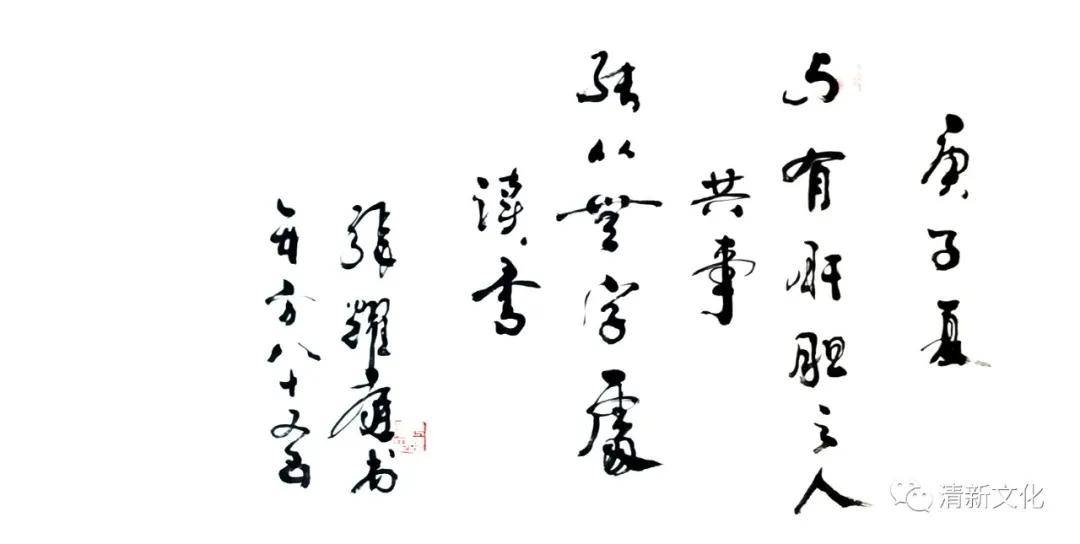 庚子夏
与有肝胆之人
共事
从無字處
读書
張耀庭书
年方八十又五
清新文化